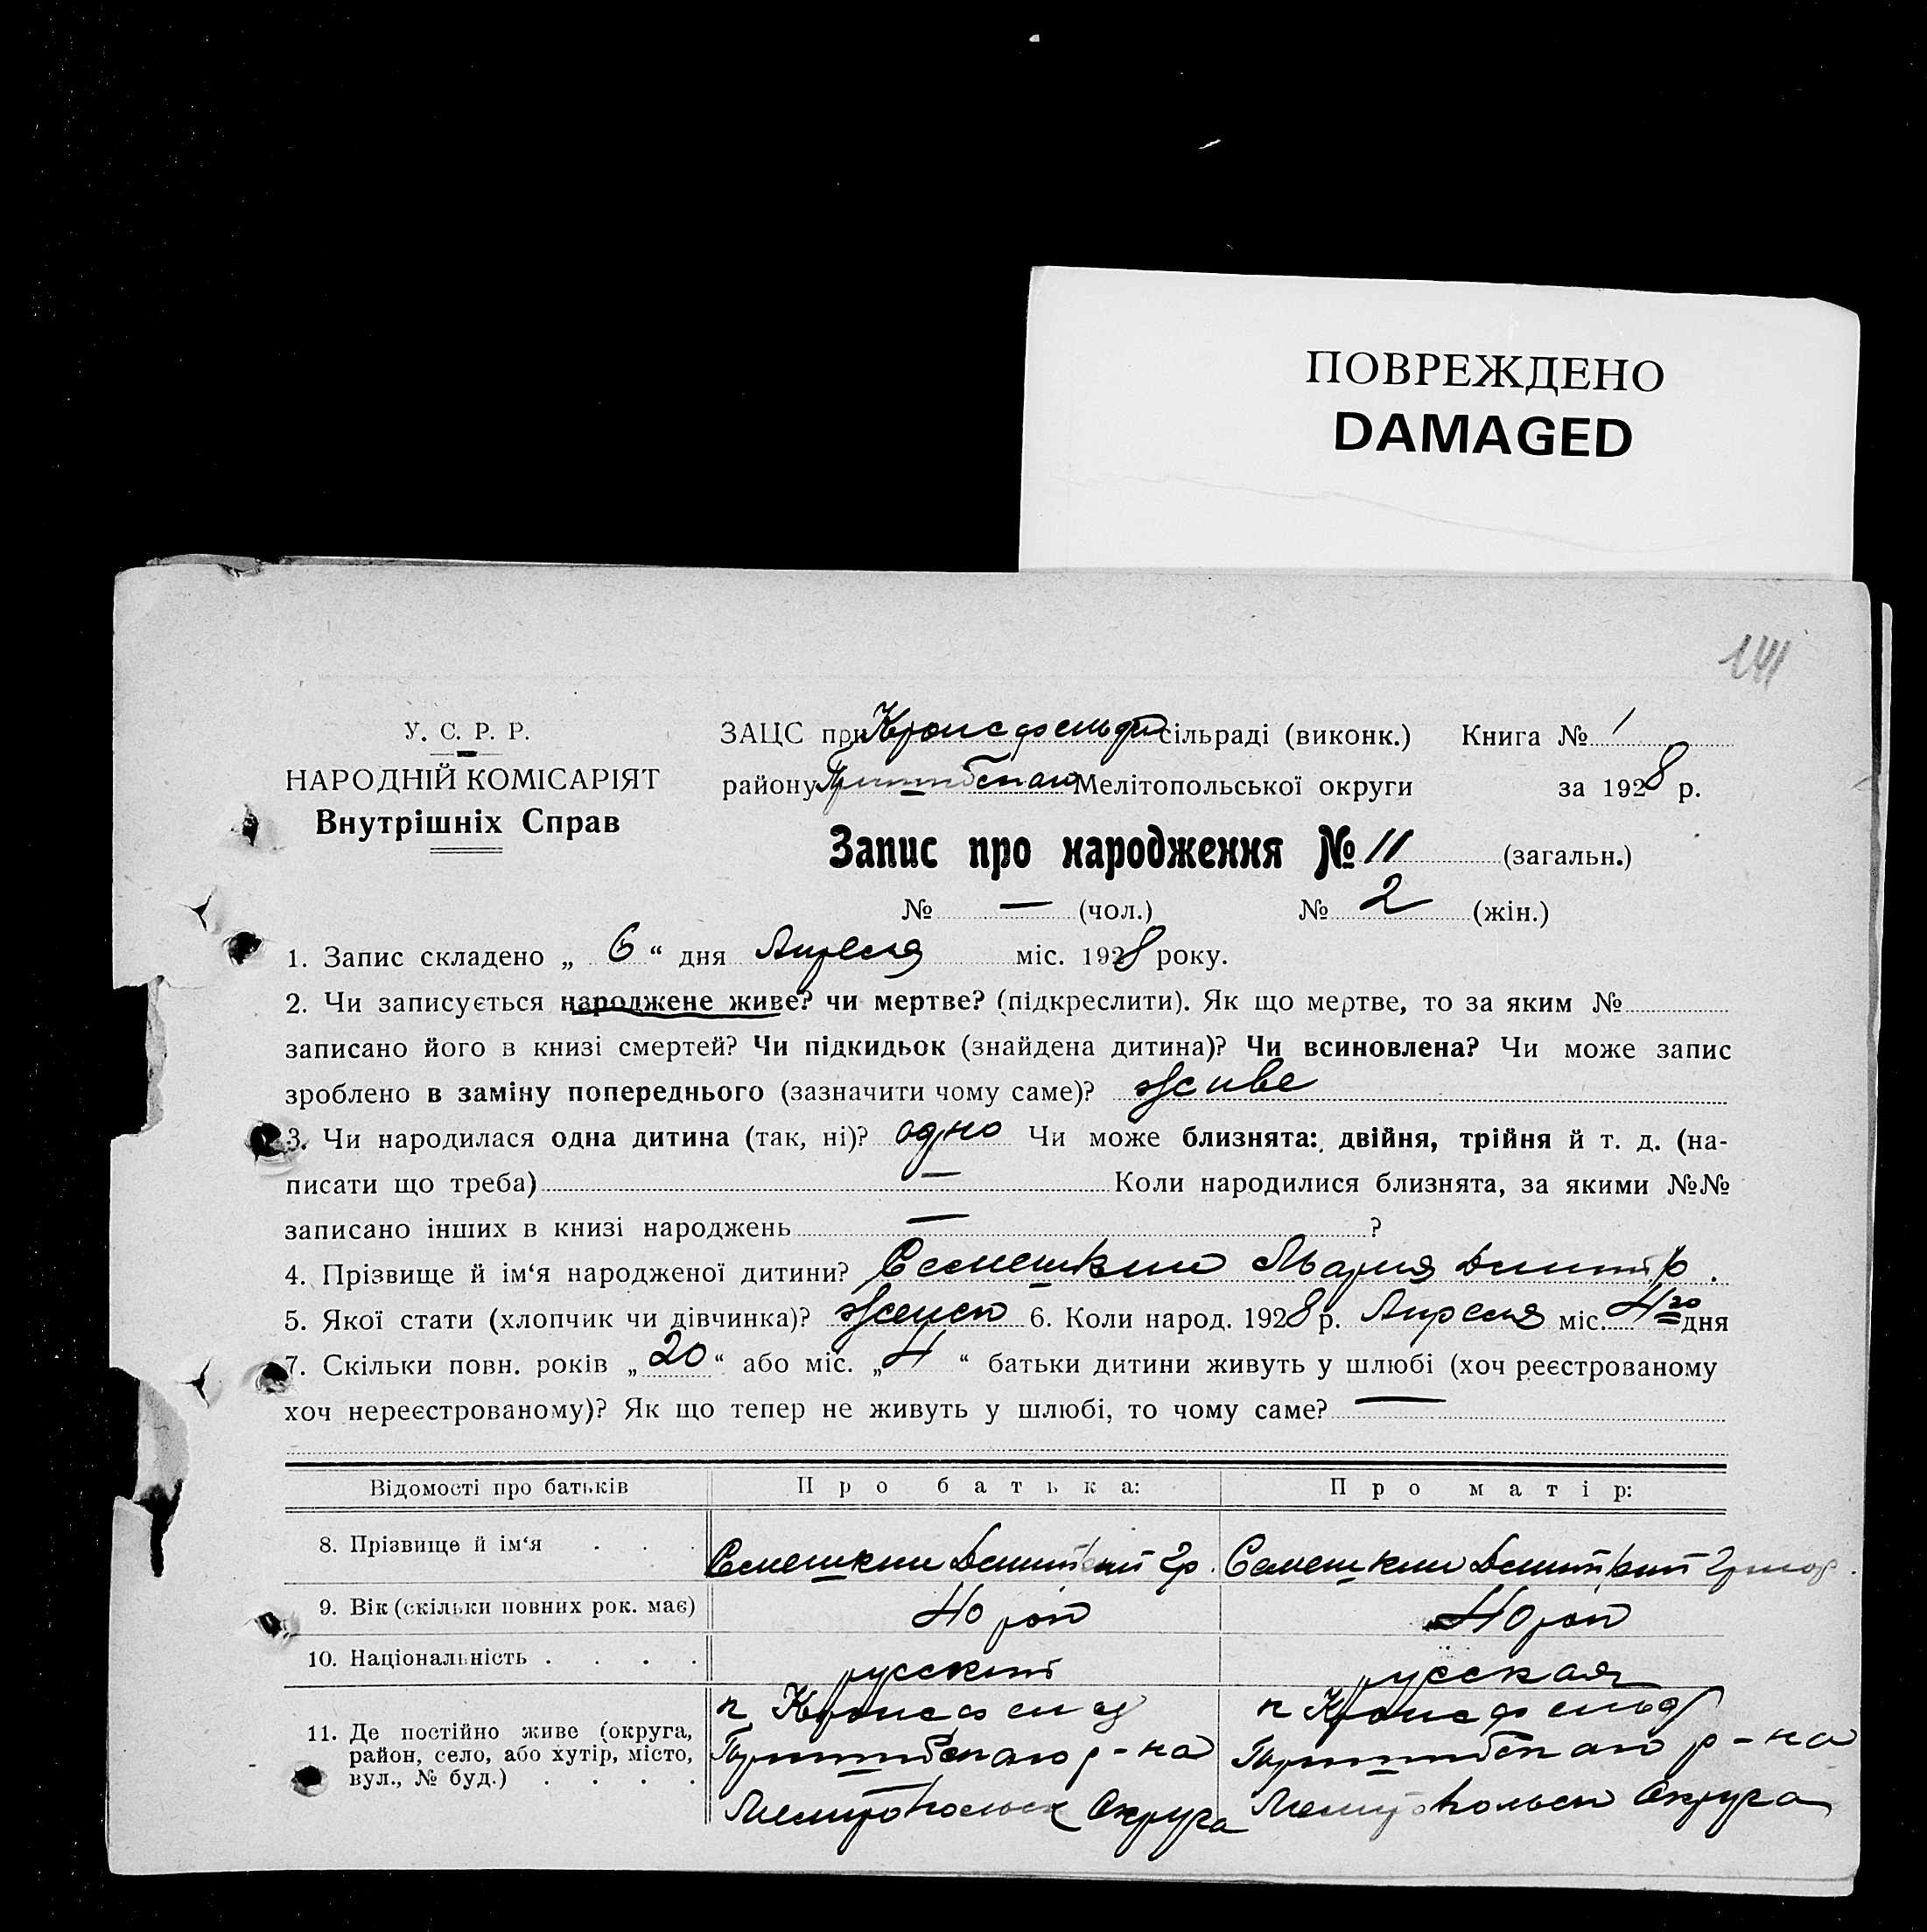 ПОВРЕЖДЕНО
DAMAGED
141
У. С. Р. Р.
НАРОДНІЙ КОМІСАРІЯТ
Внутрішніх Справ
ЗАЦС при Кронсфельди сільраді (виконк.) Книга № 1
району Мелітопольської округи за 1928 р.
Запис про народження № 11 (загальн.)
№ — (чол.) № 2 (жін.)
1. Запис складено „ 6 “ дня Апреля міс. 1928 року.
2. Чи записується народжене живе? чи мертве? (підкреслити). Як що мертве, то за яким №
записано його в книзі смертей? Чи підкидьок (знайдена дитина)? Чи всиновлена? Чи може запис
зроблено в заміну попереднього (зазначити чому саме)? живе
3. Чи народилася одна дитина (так, ні)? одно Чи може близнята: двійня, трійня й т. д. (на-
писати що треба) — Коли народилися близнята, за якими №№
записано інших в книзі народжень — ?
4. Прізвище й ім‘я народженої дитини? Семешкин Мария Димитр.
5. Якої стати (хлопчик чи дівчинка)? женск 6. Коли народ. 1928 р. Апреля міс. 4го дня
7. Скільки повн. років „ 20 “ або міс. „ 4 “ батьки дитини живуть у шлюбі (хоч реєстрованому
хоч нереєстрованому)? Як що тепер не живуть у шлюбі, то чому саме? —
Відомості про батьків Про батька: Про матір:
8. Прізвище й ім‘я . . . Семешкин Димитрий Гр. Семешкин Димитрий
9. Вік (скільки повних рок. має) 40 рок 40 рок
10. Національність . . . . русский русская
11. Де постійно живе (округа, к Кронсфельд к Кронсфельд
район, село, або хутір, місто, р-на р-на
вул., № буд.) . . . . Мелитопольск Округа Мелитопольск Округа